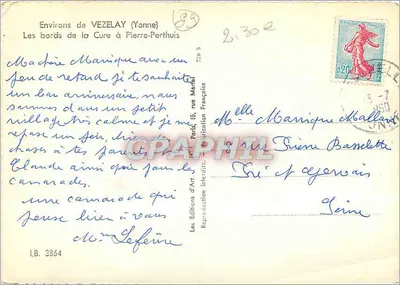 Environs de VEZELAY (Yonne)
Les bords de la Cure à Pierre-Perthuis
89
2.30€
Ma chère Monique avec un
peu de retard je te souhaite
un bon anniversaire, nous
sommes dans un petit
village très calme et je me
repose un peu,
choses à tes parents
Claude ainsi que tous les
camarades.
une camarade qui
pense bien à vous
Mme Lefèvre
I.B. 3864
Les Editions d'Art
Paris, 15, rue Martel
Reproduction interdite
Fabrication Française
CPAPHIL
0,20
Melle Monique Mallard
2 rue Pierre Bassolette
Pré St Gervais
Seine